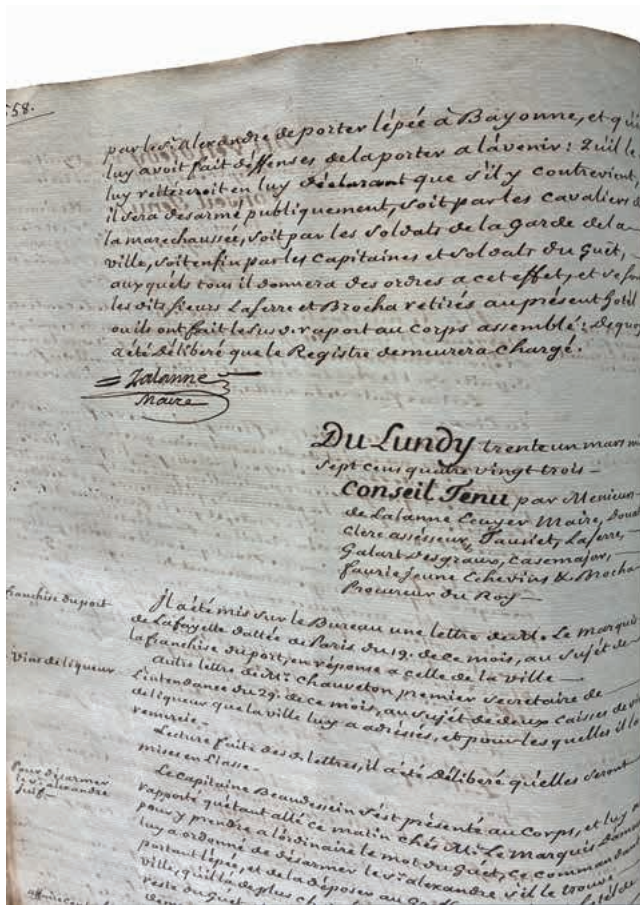 58.
par le Sr. alexandre de porter lépée à Bayonne, et qu'il
luy avoit fait deffenses de la porter a lávenir: Quil le
luy reïtéreroit en luy déclarant que s'il y contrevient,
il sera desarmé publiquement, soit par les cavaliers de
la marechaussée, soit par les soldats de la garde de la
ville, soit enfin par les Capitaines et soldats du Guet,
auxquéls tous il donnera des ordres a cet effet, et se sont
les dits sieurs Laserre et Brocha retirés au présent hotel
ou ils ont fait le susd. raport au corps assemblé: Dequoy
a été déliberé que le Registre demeurera chargé.
Lalanne
Maire
Du Lundy trente un mars mil
sept cens quatre vingt trois
Conseil Tenu par Messieurs
de Lalanne Ecuyer Maire,
Clerc assésseur, Tauziet, Laserre,
Galart Desgraux, Casemajor,
faurie jeune Echevins & Brocha
Procureur du Roy
franchise du port
Il a été mis sur le Bureau une lettre de M. Le Marquis
de Lafayette dattée de Paris du 19. de ce mois, au sujet de
la franchise du port, en réponse a celle de la ville
vins de liqueur
autre lettre de M. Chauveton premier secretaire de
L'intendance du 29. de ce mois, au sujet de deux caisses de vin
de liqueur que la ville luy a adréssés, et pour les quelles il la
remercie.
Lecture faite des d. lettres, il a été déliberé qu'elles seront
mises en Liasse.
Pour désarmer
le Sr. alexandre
juif
Le Capitaine Beaudessein s'est présenté au Corps, et luy a
rapporté qu'étant allé ce matin chés M. Le Marquis
pour y prendre a l'ordinaire le mot du Guét, ce commandant
luy a ordonné de désarmer le Sr. alexandre s'il le trouve
portant lépée, et de la déposer au
ville, quil la de plus
reste du Guet
affaire